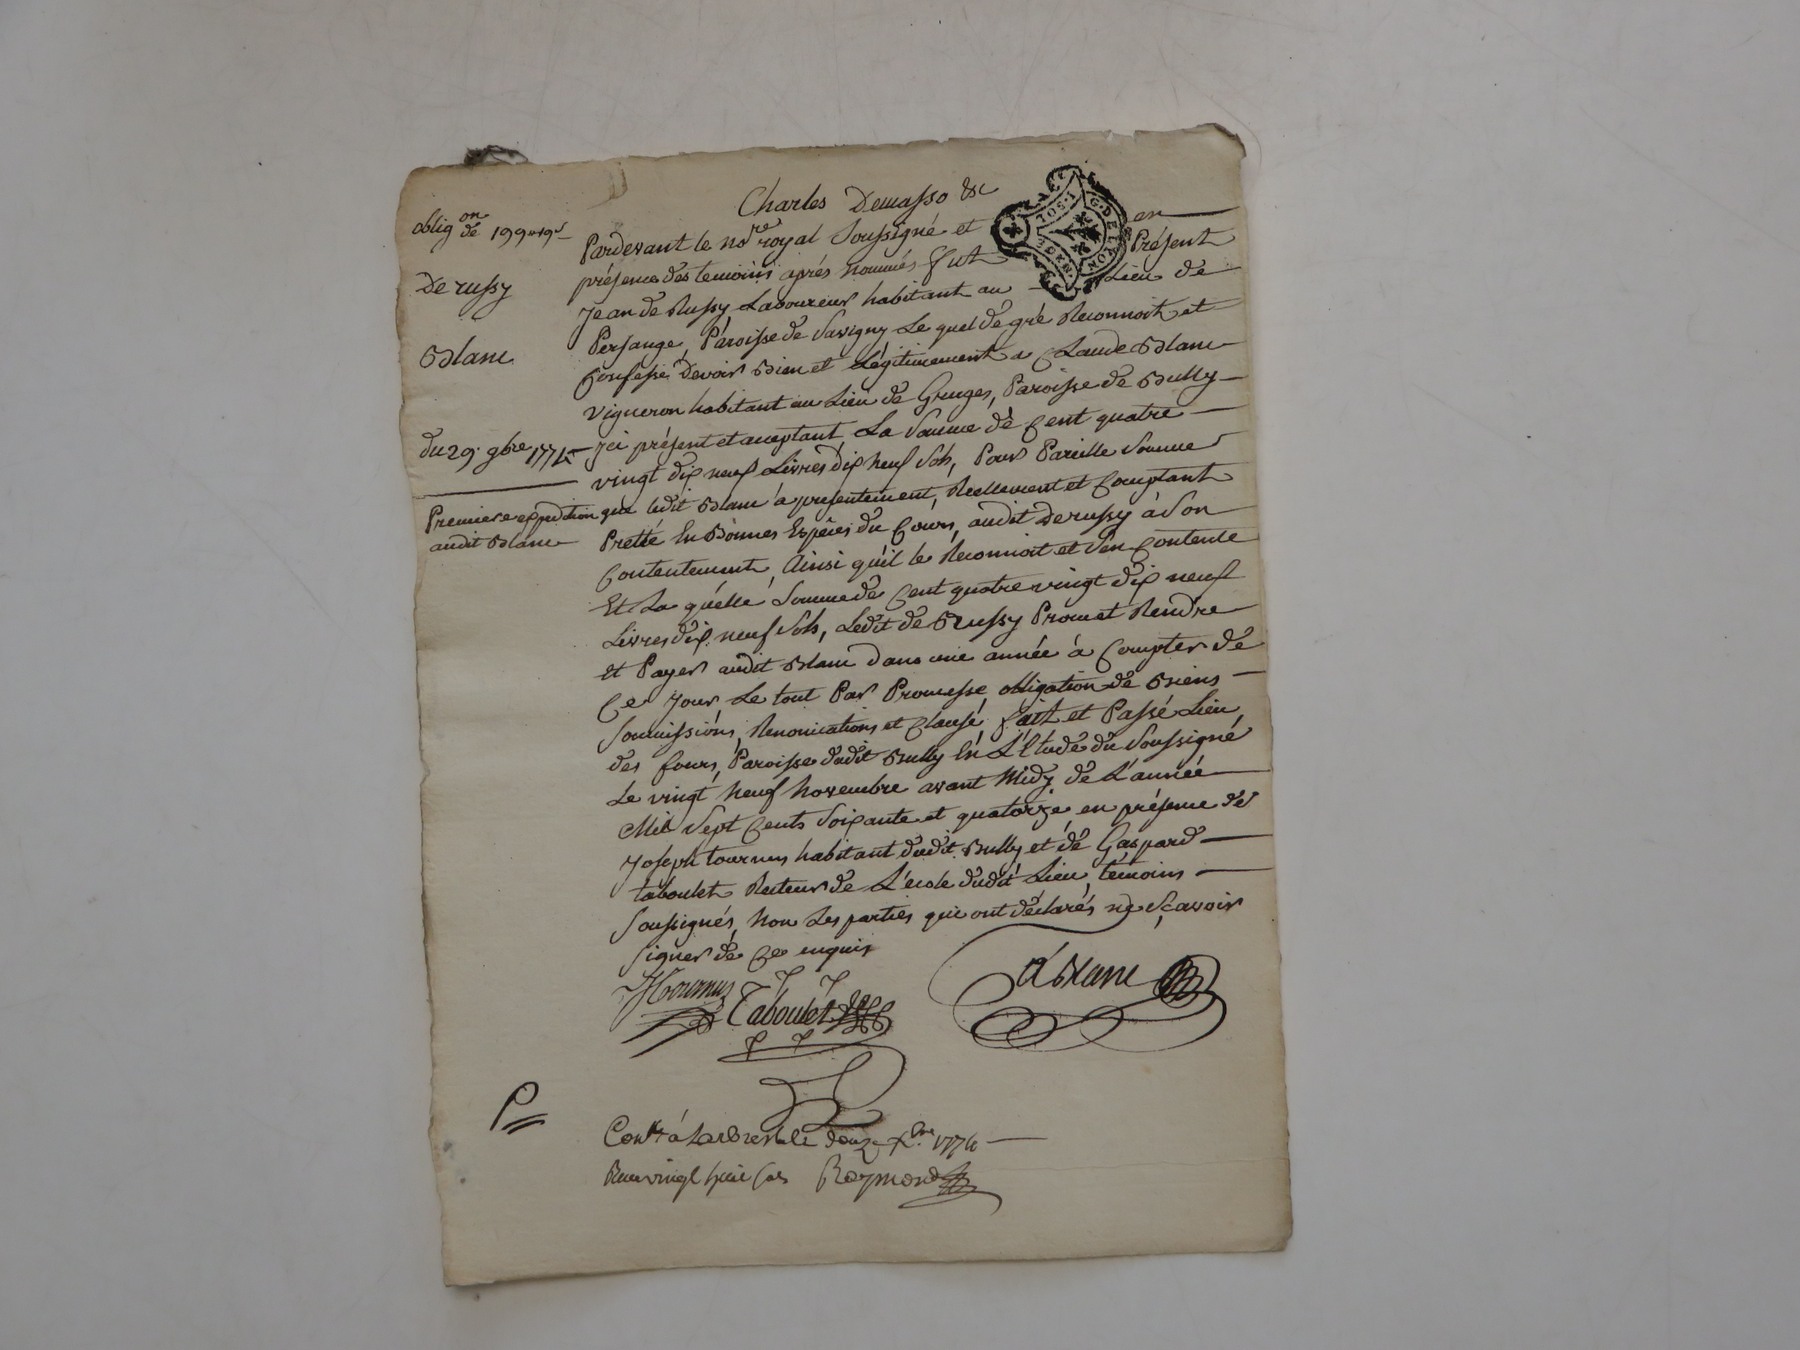 Charles Demasso &c
oblig.on de 199# 19s
Pardevant le no.re royal Soussigné et en
présence des temoins aprés nommés fut Présent
De russy
Jean de Russy Laboureur habitant au Lieu de
Persange, Paroisse de Savigny Le quel de gré Reconnoit et
Blanc
Confesse Devoir Bien et Légitimement a Claude Blanc
Vigneron habitant au Lieu de Granges, Paroisse de Bully
du 29. 9bre 1774
Ici présent et acceptant, La Somme de Cent quatre
vingt dix neuf Livres dix neuf Sols, Pour Pareille Somme
Premiere expedition
audit Blanc
que ledit Blanc a presentement, Reellement et Comptant
Pretté En Bonnes Espéces du Cours, audit Derussy à Son
Contentement, Ainsi qu'il le Reconnoit et S'en Contente
Et La quelle Somme de Cent quatre vingt dix neuf
Livres dix neuf Sols, Ledit de Russy Promet Rendre
et Payer audit Blanc Dans une année à Compter de
Ce Jour, Le tout Par Promesse, obligation de Biens
Soumissions, Renonciations et Clause, fait et Passé Lieu
des fours, Paroisse dudit Bully En L'Etude du Soussigné
Le vingt neuf Novembre avant Midy de L'année
Mil Sept Cents Soixante et quatorze, en présence de
Joseph tournus habitant dudit Bully et de Gaspard
taboulet Recteur de L'école dudit Lieu temoins
Soussignés, Non Les parties qui ont déclarés ne Sçavoir
Signer de Ce enquis
JTournus
Taboulet
Blanc
P
Con.lé á Larbresle le douze Xbre 1774
Reçu vingt huit sols Raymond